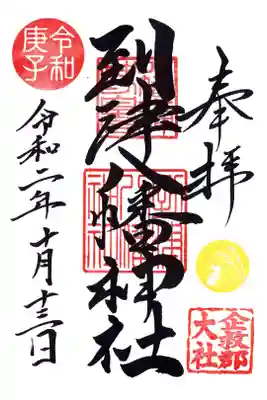 奉拝
到津八幡神社
令和
庚子
令和二年十月十三日
企救郡
大社